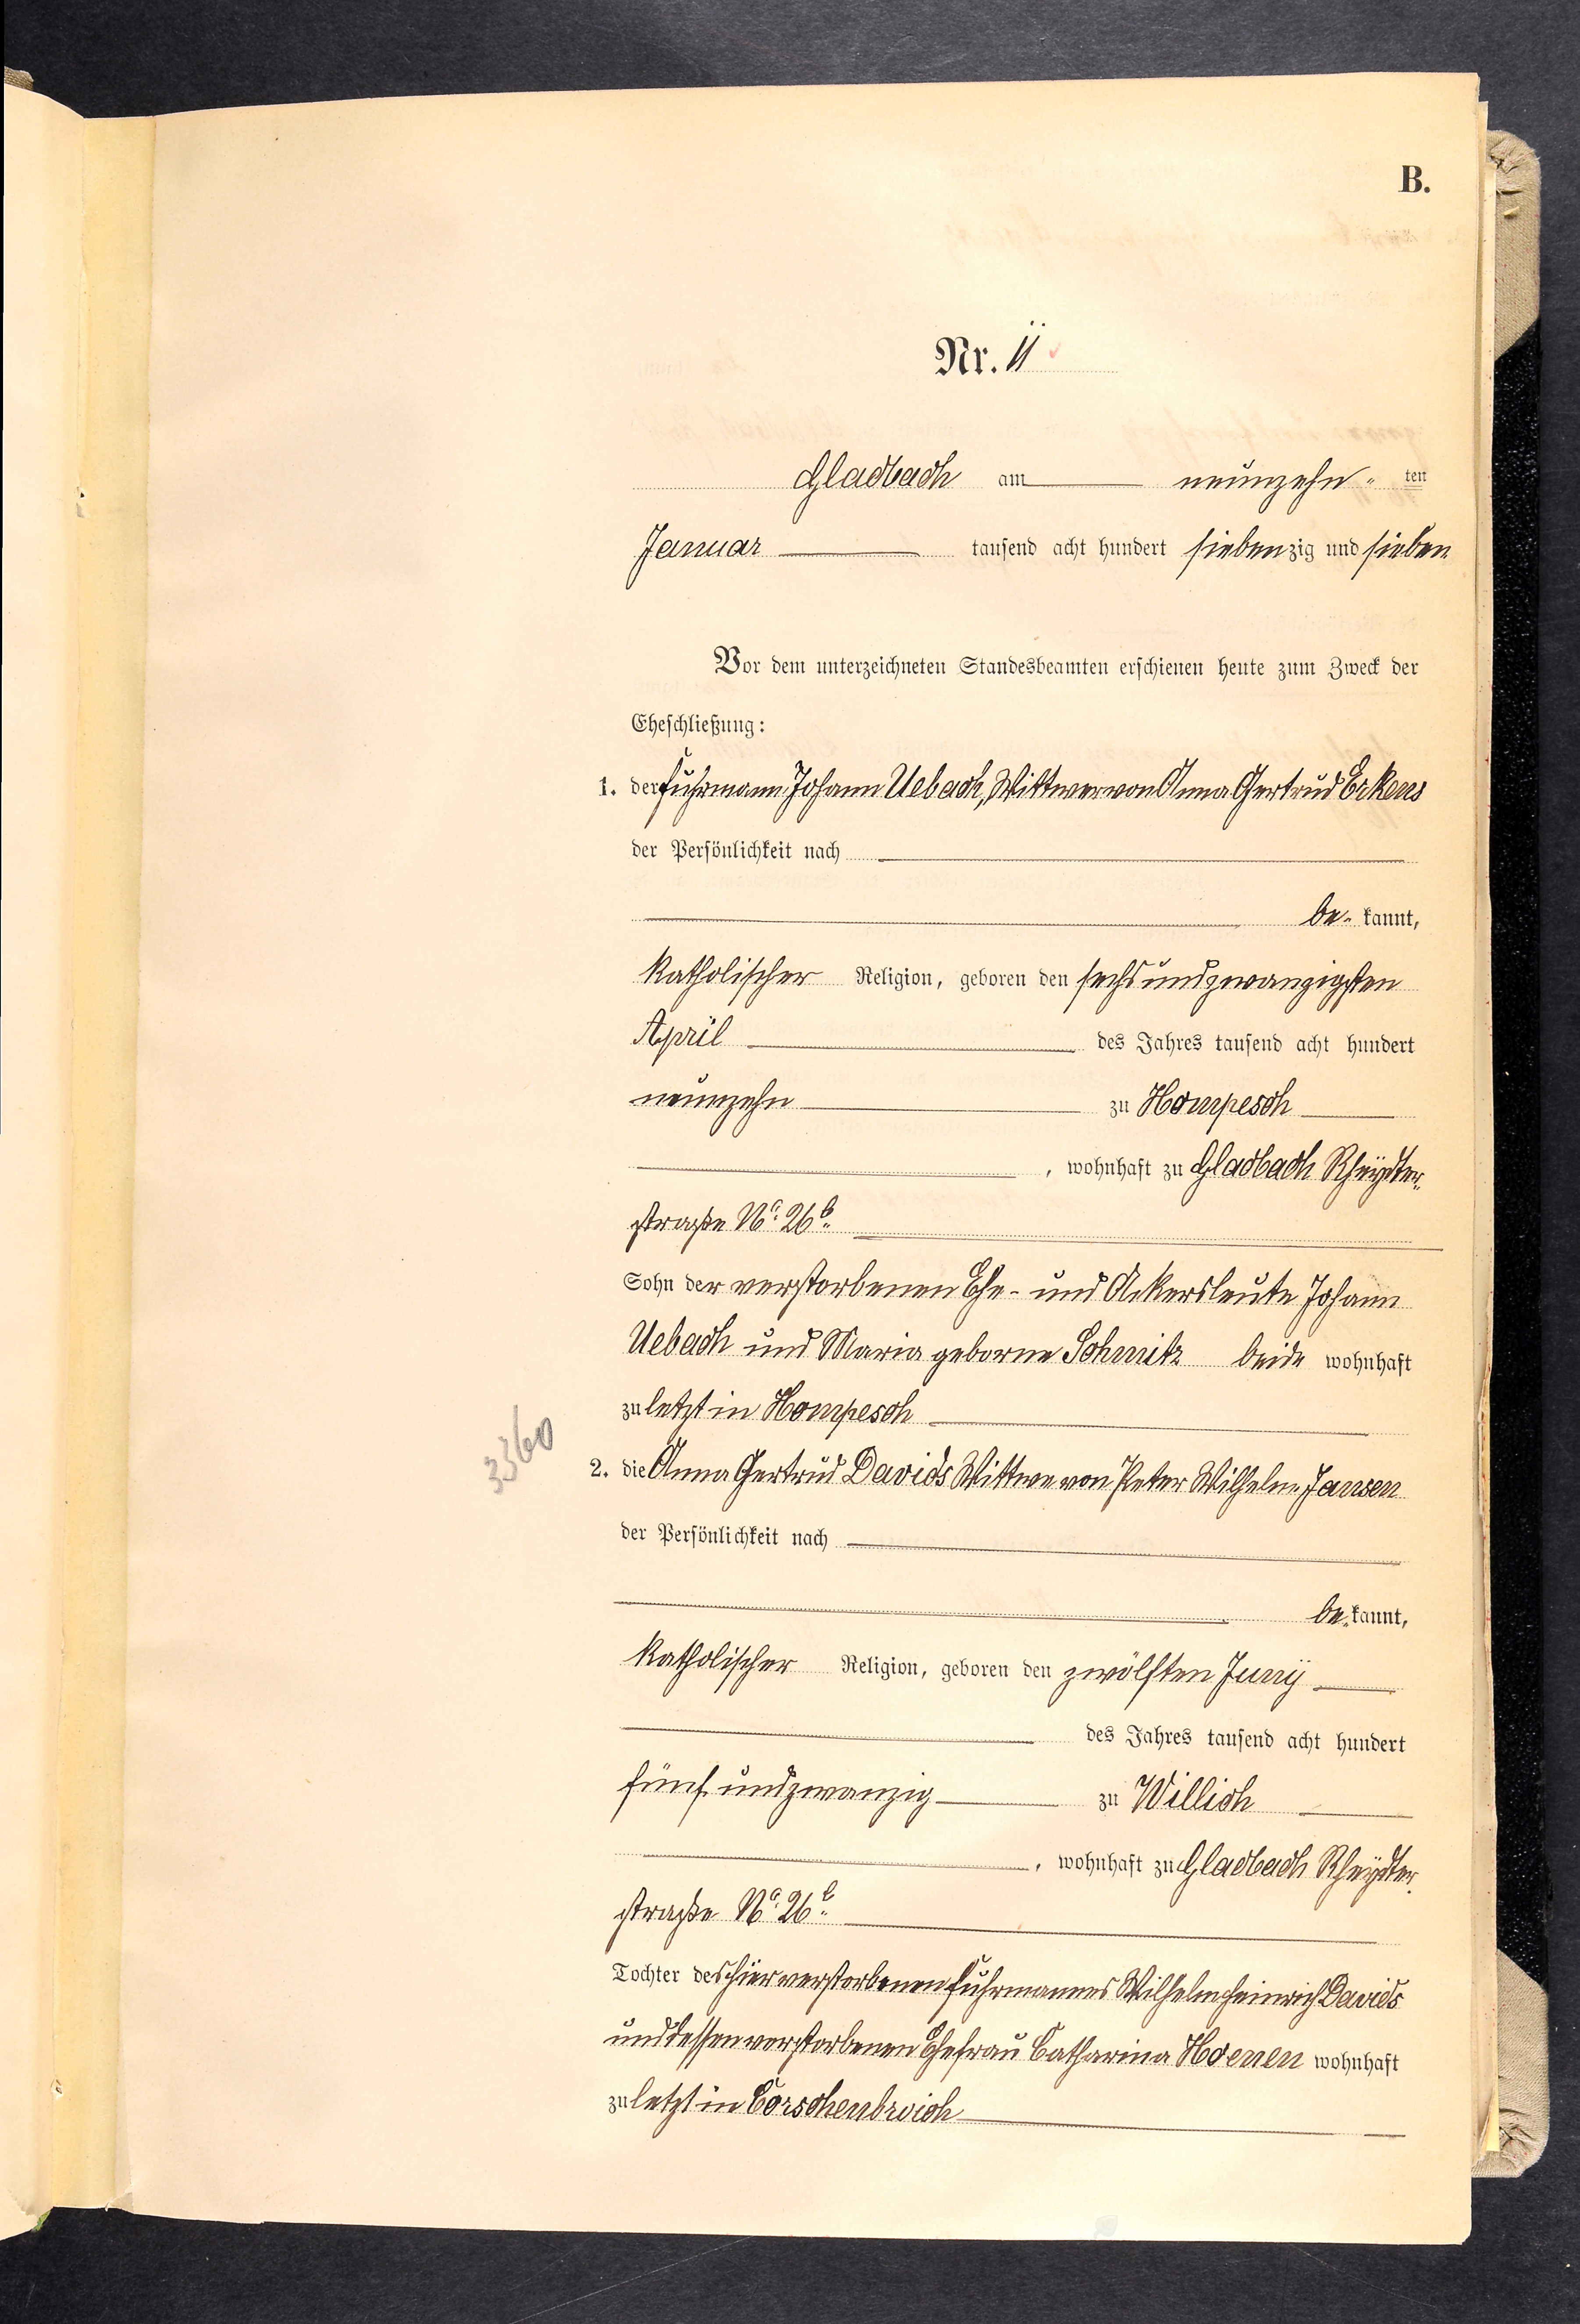 B.
Nr. 11
Gladbach am neunzehn- ten
Januar tausend acht hundert siebenzig und sieben
Vor dem unterzeichneten Standesbeamten erschienen heute zum Zweck der
Eheschließung:
1. der Fuhrmann Johann Uebach, Wittwer von Anna Gertrud Erkens
der Persönlichkeit nach
be- kannt,
katholischer Religion, geboren den sechsundzwanzigsten
April des Jahres tausend acht hundert
neunzehn zu Hompesch
, wohnhaft zu Gladbach Rheydter-
straße No. 26b.
Sohn der verstorbenen Ehe- und Ackersleute Johann
Uebach und Maria geborne Schmitz beide wohnhaft
zuletzt in Hompesch
3360
2. die Anna Gertrud Davids Wittwe von Peter Wilhelm Jansen
der Persönlichkeit nach
be- kannt,
katholischer Religion, geboren den zwölften Junÿ
des Jahres tausend acht hundert
fünfundzwanzig zu Willich
, wohnhaft zu Gladbach Rheydter-
straße No. 26b.
Tochter des hier verstorbenen Fuhrmannes Wilhelm Heinrich Davids
und dessen verstorbenen Ehefrau Catharina Hoenen wohnhaft
zuletzt in Corschenbroich